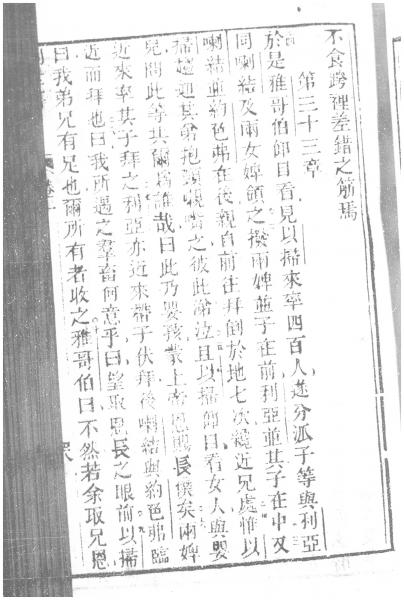 不食跨裡差錯之筋焉
第三十三章
於是雅哥伯節目看見以掃來率四百人遂分派子等與利亞
同喇結及兩女婢領之撥兩婢並子在前利亞並其子在中又
喇結並約色弗在後親自前往拜倒於地七次纔近兄處惟以
掃趨迎其抱頸親嘴之彼此泣且以掃節目看女人與嬰
兒問此等其爾為誰哉曰此乃嬰孩蒙上帝恩賜長僕矣兩婢
近來率其子拜之利亞亦近來帶子伏拜後喇結與約色弗臨
近而拜也曰我所遇之羣畜何意乎曰望取恩長之眼前以掃
曰我弟兄有兄也爾所有者收之雅哥伯曰不然若余取兄恩